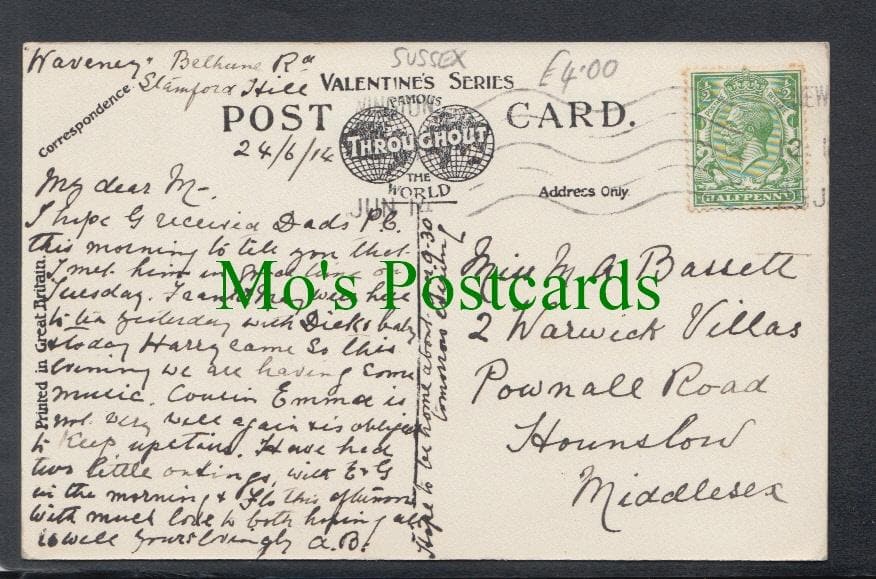 "Waveney" Bethune Rd
Stamford Hill
SUSSEX
£4.00
VALENTINE'S SERIES
POST CARD.
FAMOUS
THROUGHOUT
THE
WORLD
Correspondence.
Address Only.
24/6/14
JUN
HALFPENNY
My dear M—
I hope G received Dads P.C.
this morning to tell you that
I met him in good time on
Tuesday. Frank & Amy were here
to tea yesterday with Dicks baby
& today Harry came So this
evening we are having some
music. Cousin Emma is
not very well again & is obliged
to keep upstairs. Have had
two little outings, with E & G
in the morning & Flo this afternoon
With much love to both hoping all
is well Yours lovingly A.B.
Hope to be home about 9-30
tomorrow evening
Miss M A Bassett
2 Warwick Villas
Pownall Road
Hounslow
Middlesex
Printed in Great Britain.
Mo's Postcards